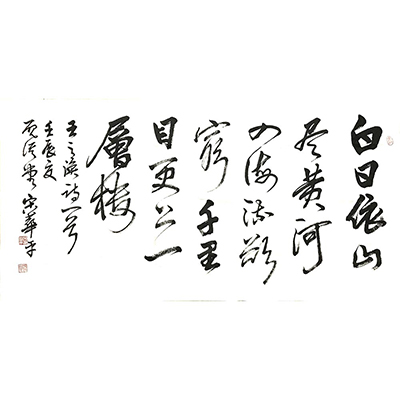 白日依山
尽黄河
入海流欲
穷千里
目更上一
層楼
王之涣诗一首
壬辰夏
宋華平